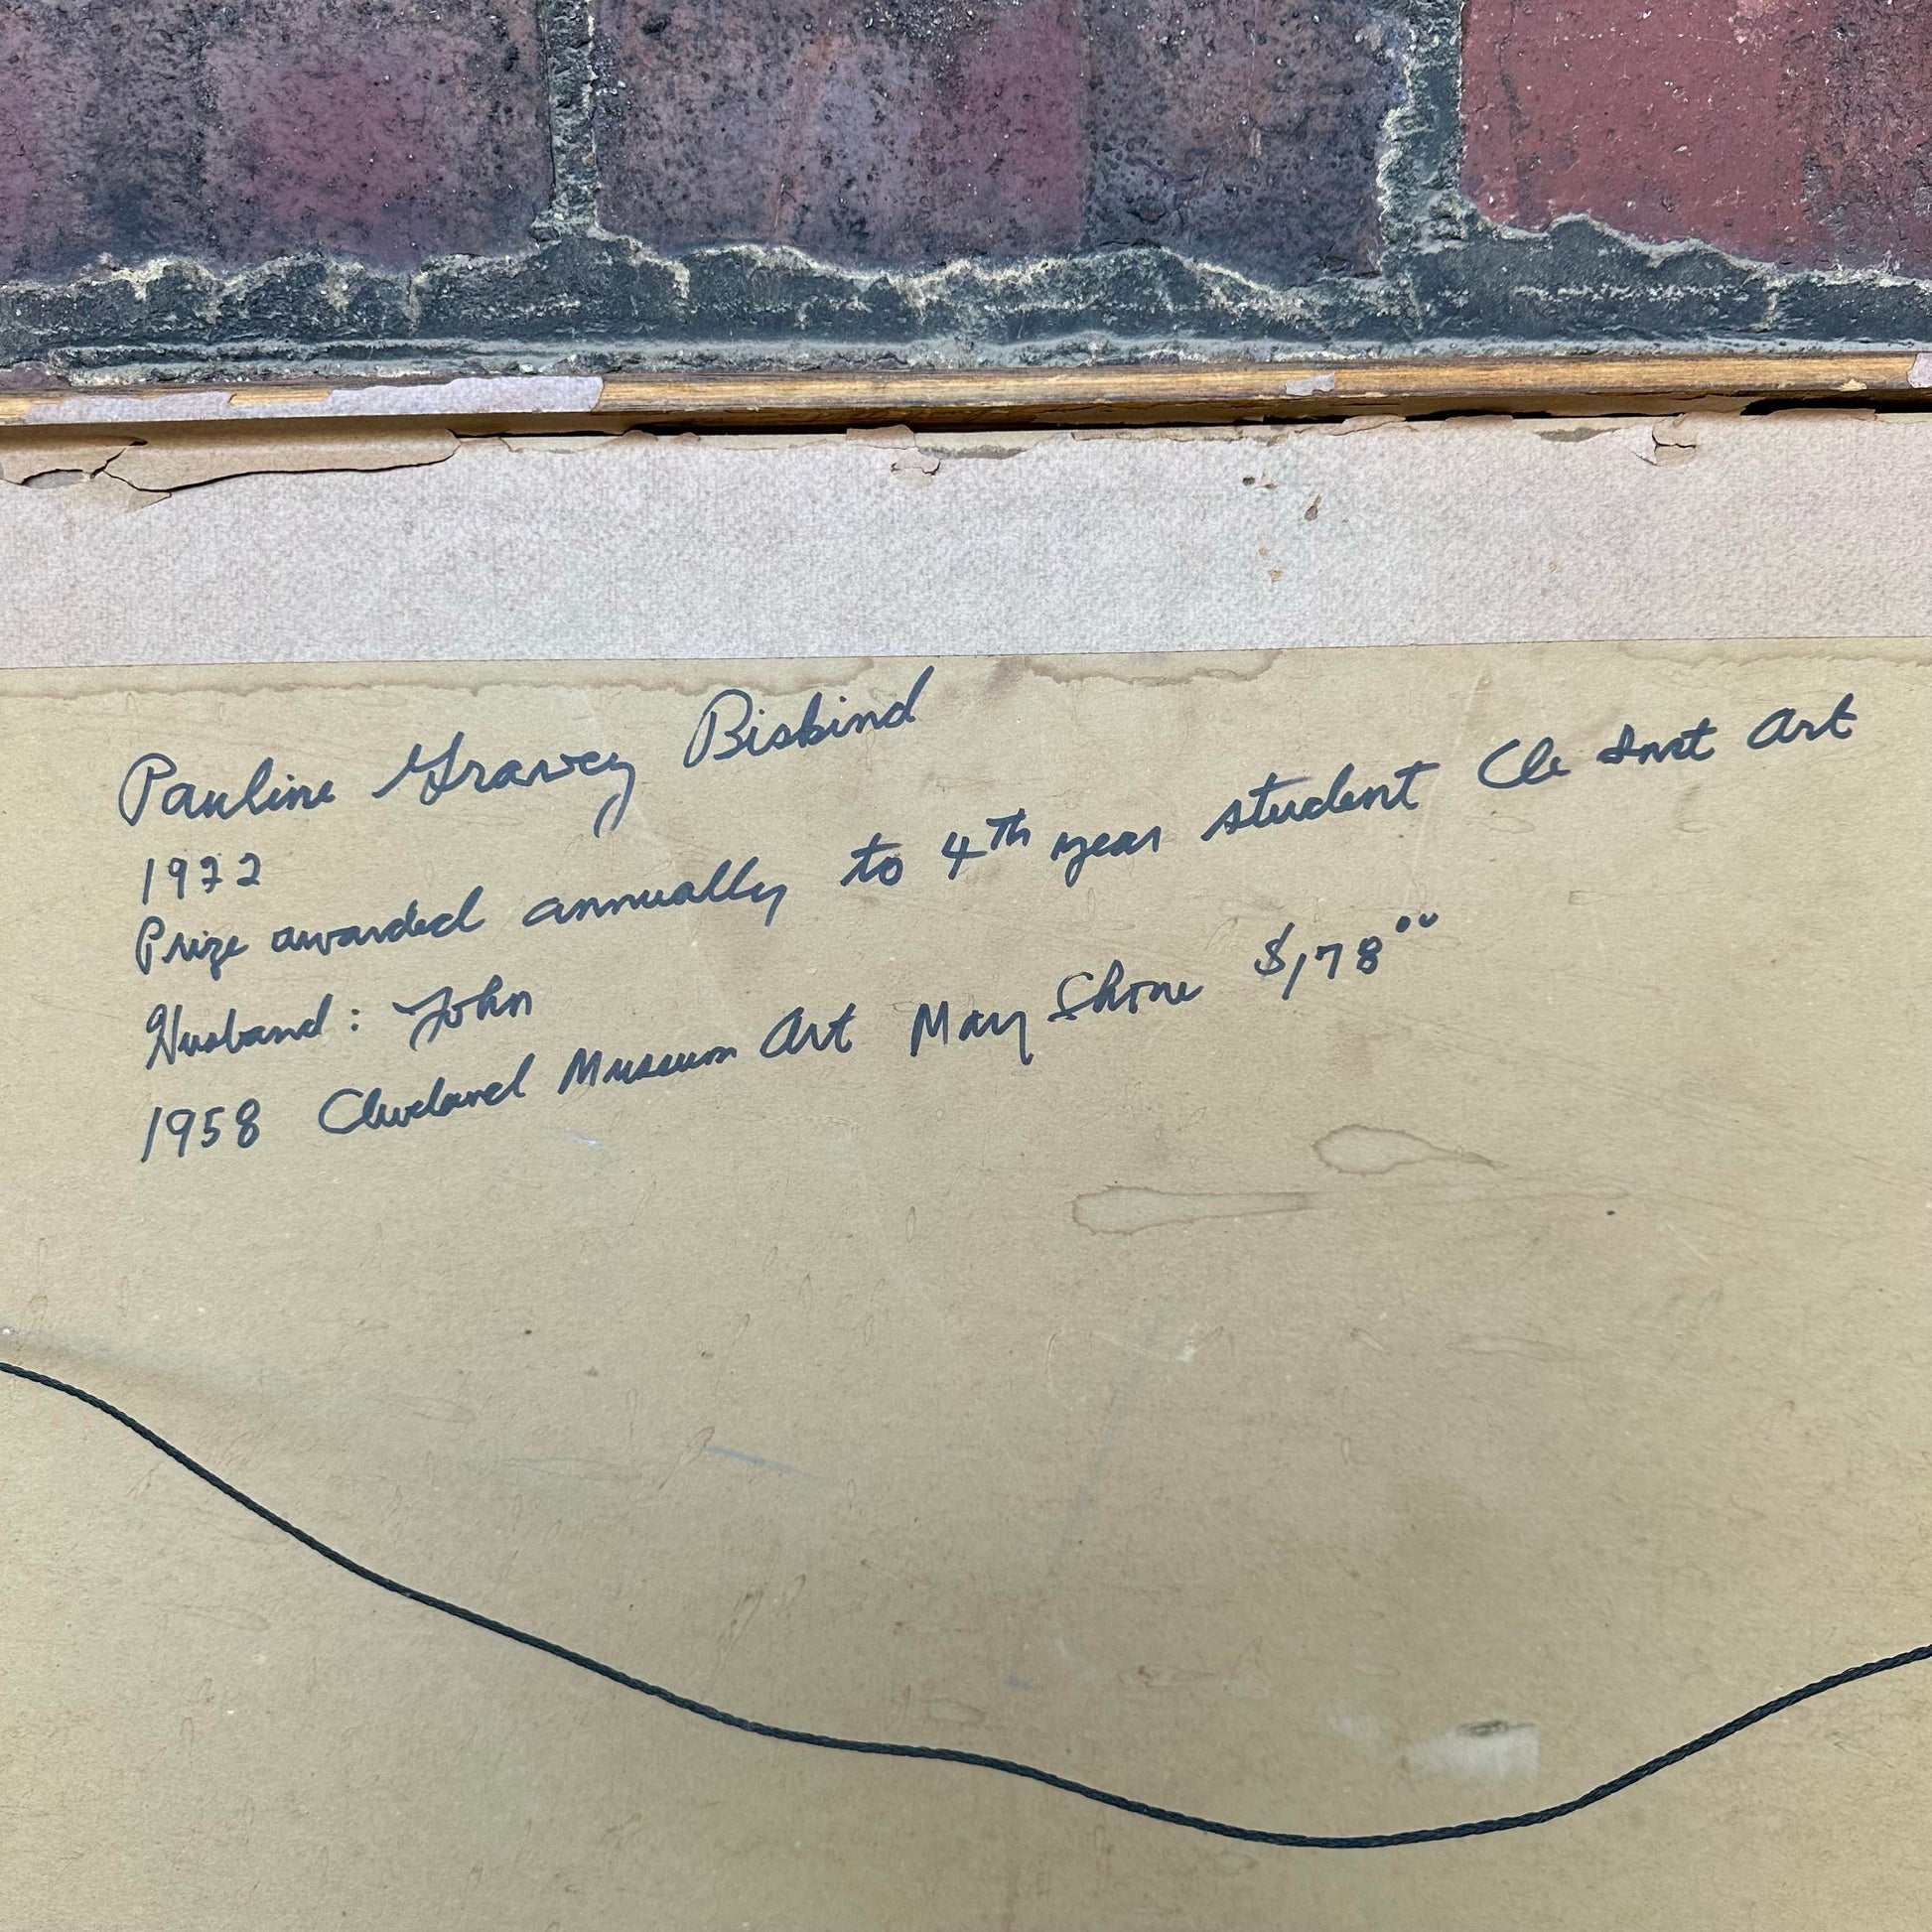 Pauline Gravey Biskind
1972
Prize awarded annually to 4th year student Cle Inst Art
Husband: John
1958 Cleveland Museum Art May Show $178⁰⁰